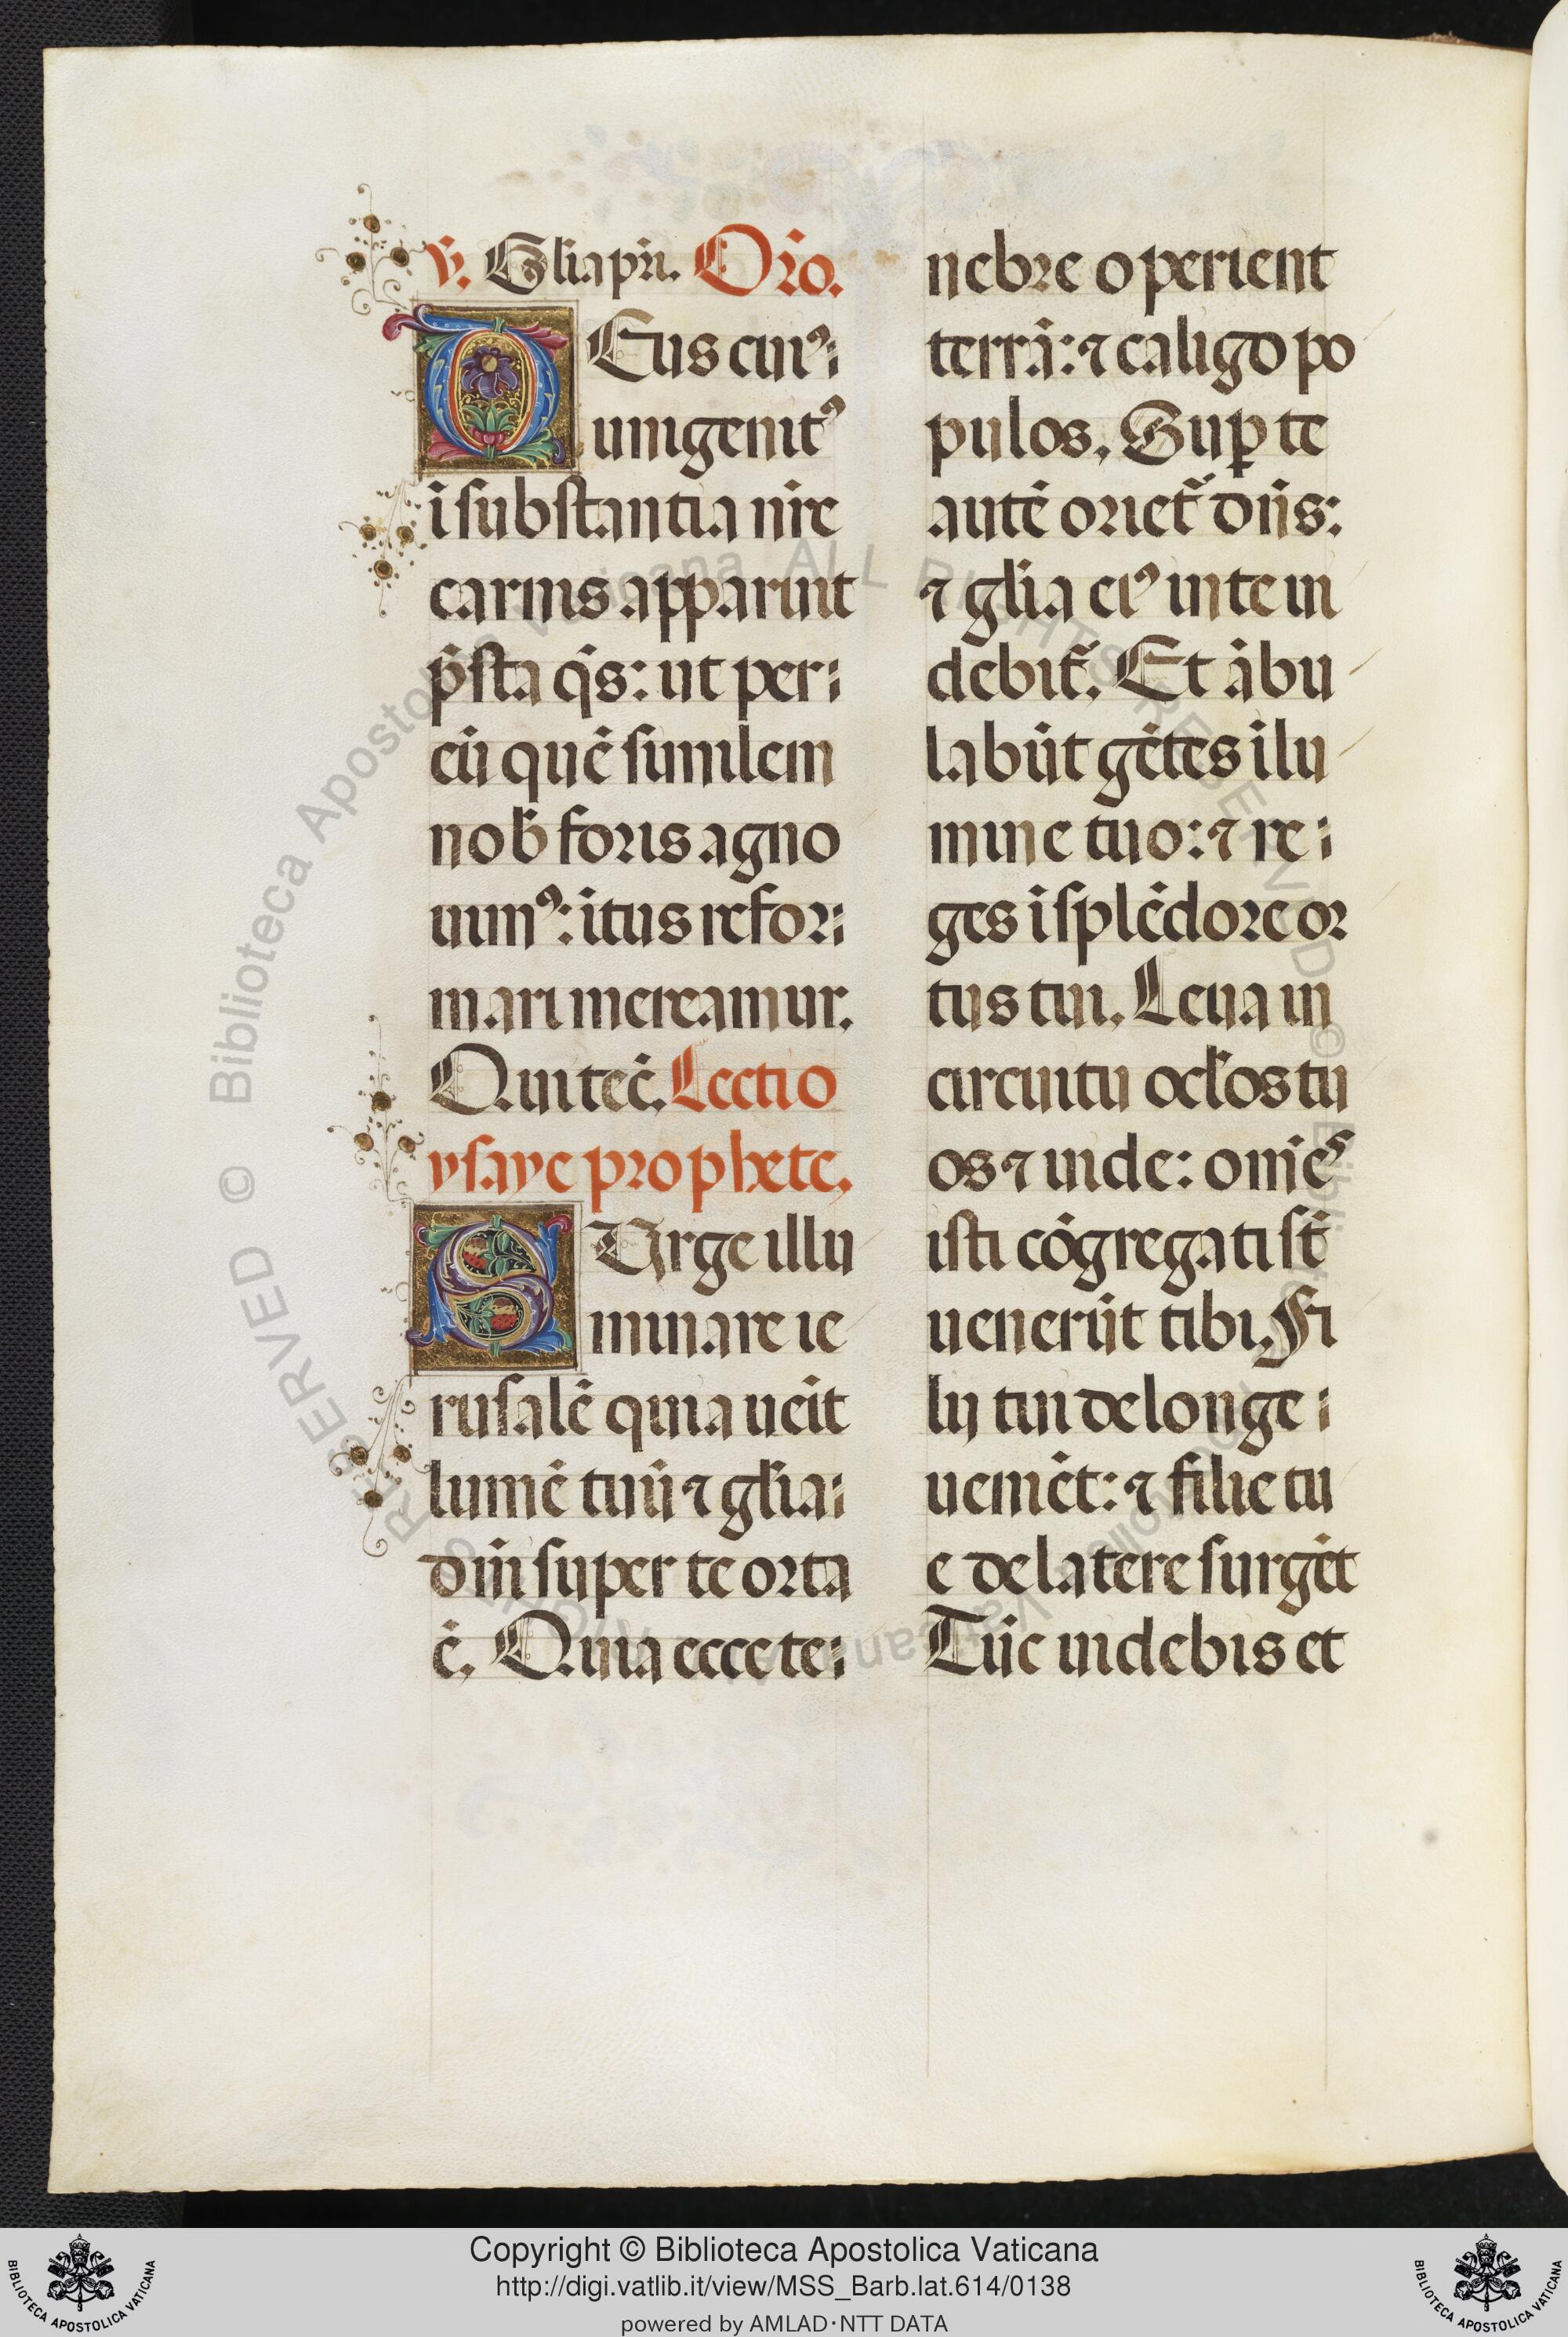 v̄. Gl̄ia pr̄i. Or̄o.
DEus cui⁹
unigenit⁹
ī substantia nr̄e
carnis apparuit
p̄sta q̄s: ut per
eū quē similem
nob̄ foris agno
uim⁹: ītus refor
mari mereamur.
Qui tec̄. Lectio
ysaye prophete.
SUrge illu
minare ie
rusalē quia ueīt
lumē tuū ⁊ gl̄ia
dn̄i super te orta
ē. Quia ecce te
nebre operient
terrā: ⁊ caligo po
pulos. Suꝑ te
autē oriet᷑ dn̄s:
⁊ gl̄ia ei⁹ in te ui
debit᷑. Et ābu
labūt gētes ī lu
mine tuo: ⁊ re
ges ī splēdore or
tus tui. Leua in
circuitu oc̄los tu
os ⁊ uide: om̄es
isti cōgregati st̄
uenerūt tibi. Fi
lij tui de longe
ueniēt: ⁊ filie tu
e de latere surgēt
Tūc uidebis et
© Biblioteca Apostolica Vaticana ALL RIGHTS RESERVED
Copyright © Biblioteca Apostolica Vaticana
http://digi.vatlib.it/view/MSS_Barb.lat.614/0138
powered by AMLAD·NTT DATA
BIBLIOTECA APOSTOLICA VATICANA
BIBLIOTECA APOSTOLICA VATICANA